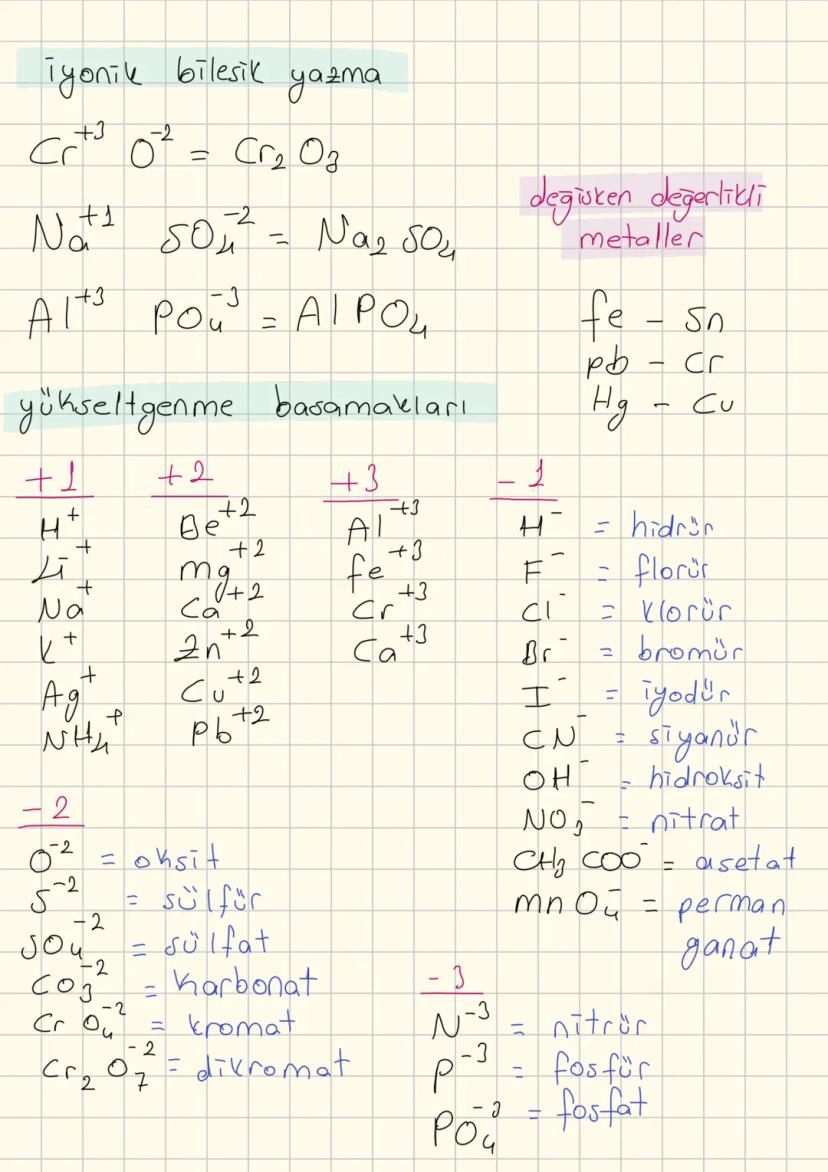 iyonik bileşik yazma
Cr⁺³ O⁻² = Cr₂ O₃
Na⁺¹ SO₄⁻² = Na₂ SO₄
Al⁺³ PO₄⁻³ = Al PO₄
değişken değerlikli
metaller
fe - Sn
pb - Cr
Hg - Cu
yükseltgenme basamakları
+1
H⁺
Li⁺
Na⁺
K⁺
Ag⁺
NH₄⁺
+2
Be⁺²
mg⁺²
Ca⁺²
Zn⁺²
Cu⁺²
Pb⁺²
+3
Al⁺³
fe⁺³
Cr⁺³
Ca⁺³
-1
H⁻ = hidrür
F⁻ = florür
Cl⁻ = klorür
Br⁻ = bromür
I⁻ = iyodür
CN⁻ = siyanür
OH⁻ = hidroksit
NO₃⁻ = nitrat
CH₃ COO⁻ = asetat
mn O₄⁻ = perman
ganat
-2
O⁻² = oksit
S⁻² = sülfür
SO₄⁻² = sülfat
CO₃⁻² = karbonat
Cr O₄⁻² = kromat
Cr₂ O₇⁻² = dikromat
-3
N⁻³ = nitrür
P⁻³ = fosfür
PO₄⁻³ = fosfat